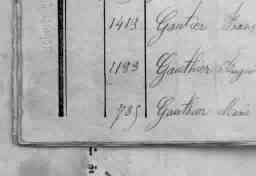 1413 Gautier Franç
1193 Gauthier
785 Gauthier Marie